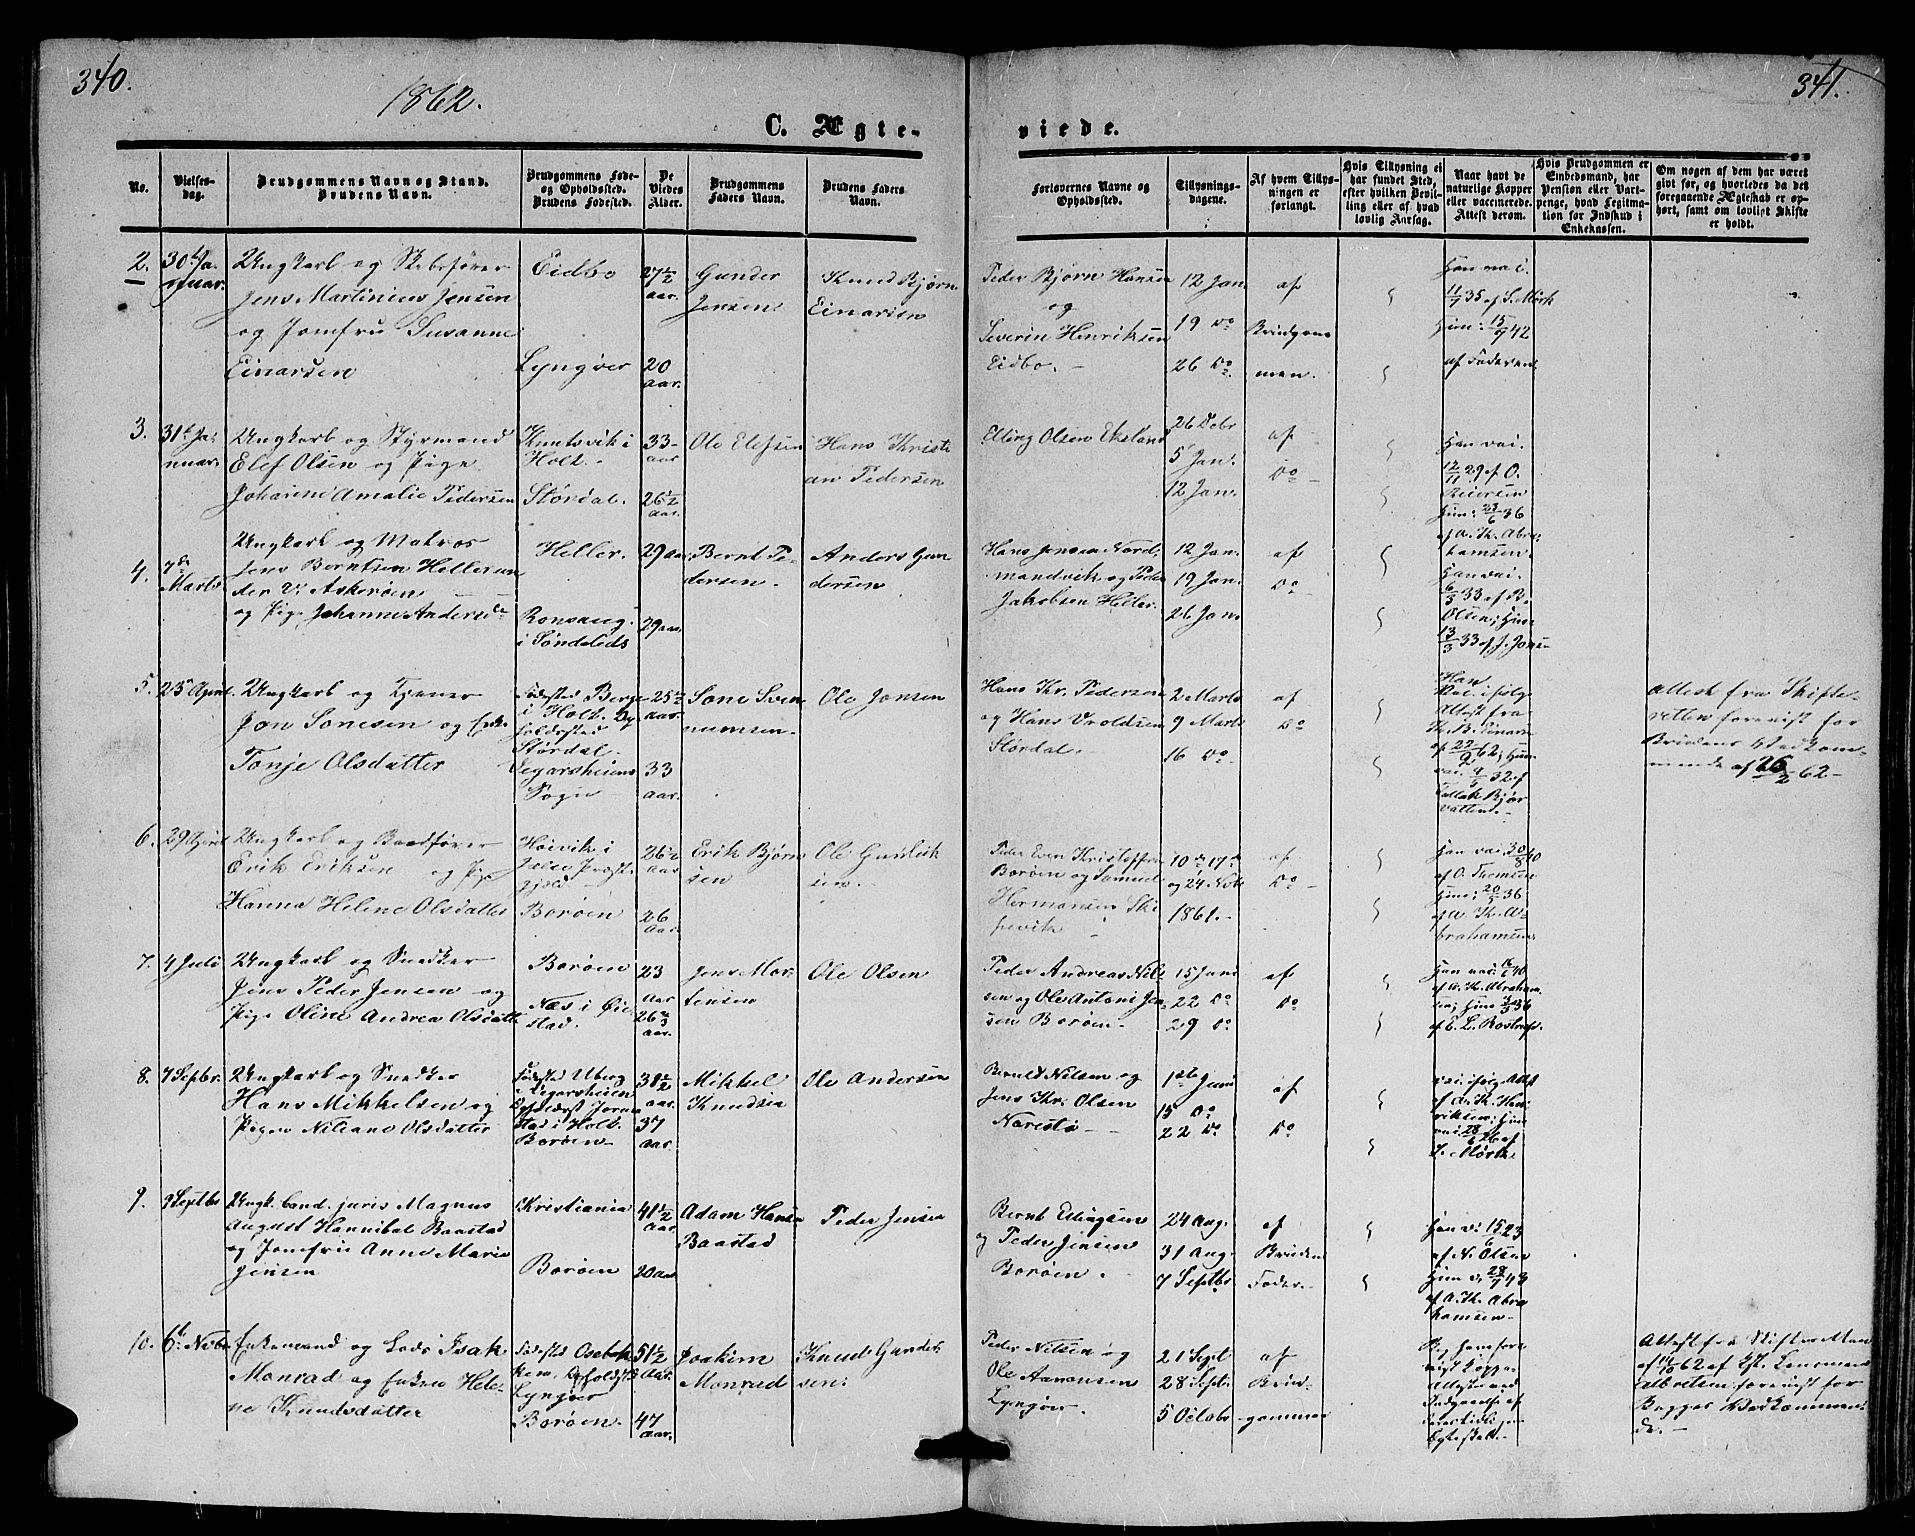 340.
1862.
C. Ægte-
No.
Vielses-
dag.
Brudgommens Navn og Stand.
Brudens Navn.
Brudgommens Føde-
og Opholdssted.
Brudens Fødested.
De
Viedes
Alder.
Brudgommens
Faders Navn.
Brudens Faders
Navn.
2. 30te Ja-
nuar.
Ungkarl og Skibsfører
Jens Martinius Jensen
og Jomfru Susanne
Einarsen
Eidbo
Lyngøer
27 1/2
aar.
20
aar.
Gunder
Jensen
Knud Bjørn
Einarsen
3. 31te Ja-
nuar.
Ungkarl og Styrmand
Elef Olsen og Pige
Johanne Amalie Pedersen
Knutsvik i
Holt.
Størdal.
33
aar
26 1/2
aar.
Ole Elefsen
Hans Kristi
an Pedersen
4. 7de
Marts
Ungkarl og Matros
Jens Berntsen Heller un
der V. Askerøen
og Pige Johanne Andersdr
Heller.
i Søndeleds
29 aar
29 aar.
Bernt Pe-
dersen.
Anders Gun
dersen
5. 23 April.
Ungkarl og Tjener
Jon Sonesen og Enke
Tonje Olsdatter
Fødested Berge
i Holt. Op
holdssted
Størdal.
Gegarsheiens
Sogn
25 1/2
aar.
33
aar.
Sone Sven
numsen.
Ole Jonsen
6. 29 April
Ungkarl og Baadfører
Erik Eriksen og Pige
Hanna Helene Olsdatter
Høivik i
Præst
gjeld
Borøen
26 1/2
aar
26
aar.
Erik Bjørn
sen
Ole Gunlick
sen.
7. 4 Juli
Ungkarl og Snedker
Jens Peder Jensen og
Pige Oline Andrea Olsdatter
Borøen
Næs i Øie
stad.
23
aar
26 2/3
aar.
Jens Mor-
tensen
Ole Olsen
8. 7 Septbr.
Ungkarl og Snedker
Hans Mikkelsen og
Pigen Niliane Olsdatter
Fødested Uberg
i Gegarsheien
stad i Holt.
Borøen
31 1/2
aar.
37
aar.
Mikkel
Knudsen
Ole Andersen
9. 9 Septbr
Ungk. cand. juris Magnus
August Hannibal Baastad
og Jomfru Anne Marie
Jensen
Kristiania
Borøen
41 1/2
aar
20 aar
Adam Hansen
Baastad
Peder Jensen
10. 6te Novbr
Enkemand og Lods Isak
Monrad og Enken Hele-
ne Knudsdatter
Fødested Osebak
Lyngøer
Borøen.
51 1/2
aar.
47
aar.
Joakim
Monrad
Knud Gunder
sen.
341.
viede.
Forlovernes Navne og
Opholdssted.
Tillysnings-
dagene.
Af hvem Tillys-
ningen er
forlangt.
Hvis Tillysning ei
har fundet Sted,
efter hvilken Bevil-
ling eller af hvad
lovlig Aarsag.
Naar havt de
naturlige Kopper
eller vaccinerede.
Attest derom.
Hvis Brudgommen er
Embedsmand, har
Pension eller Vart-
penge, hvad Legitma-
tion for Indskud i
Enkekassen.
Om nogen af dem har været
gift før, og hvorledes da det
foregaaende Ægteskab er op-
hørt, samt om lovligt Skifte
er holdt.
Peder Bjørn Hansen
og
Severin Henriksen
Eidbo.
12 Jan
19 Do
26 Do
af
Brudgom
men.
Han vac.
11/7 35 af S. Mørk
Hun: 15/7 42
af Faderen
Elling Olsen Eksland
26 Debr
5 Jan.
12 Jan.
af
Do
Han vac.
12/11 29 af O.
Reiersen
Hun: 23/6 36
af A. Th. Abra
hamsen.
Hans Jensen Nord-
mandvik og Peder
Jakobsen Heller.
12 Jan.
19 Jan.
26 Jan.
af
Do
Han vac.
6/5 33 af B.
Olsen; Hun
13/3 33 af J. Jonsen
Hans Kr. Pedersen
og Hans Vroldsen
Stordal.
2 Marts
9 Marts
16 Do
af
Do
Han
vac. ifølge
Attest fra
af 22/2 62; Hun
vac. 4/5 32 af
Tallak Bjør
vatten.
Attest fra Skifte-
retten forevist for
Brudens Vedkom-
mende af 26/2 62
Peder Even Kristoffer
Borøen og Samuel
Hermansen Ski
pevik
10de 17de
og 24 Nvbr
1861.
af
Do
Han vac. 30/8 40
af O. Thomsen
Hun: 20/5 36
af A. Th. A-
brahamsen
Peder Andreas Niel
sen og Ole Antoni Jen
sen Borøen.
15 Juni
22 Do
29 Do
af
Do
Han vac. 16/6 40
af A. Th. Abraham
sen; Hun 3/5 36
Berndt Nilsen og
Jens Kr. Olsen
Narestø
1ste Juni
15 Do
22 Do
af
Do
vac. ifølg Attst
af A. Th. Hen
riksen: Hun
vac. 28/6 26 af
S. Mørk.
Bernt Ellingsen
og Peder Jensen
Borøen.
24 Aug.
31 Aug.
7 Septbr
af
Brudens
Fader
Han v: 15/6 23
af N. Olsen
Hun v. 28/7 43
af A. Th. Abra
hamsen
Peder Nilsen og
Ole Aanonsen
Lyngøer.
21 Sept
28 Sept.
5 Octobr
af
Brud-
gommen
Ægteskab.
Attest fra Skifteretten
af 14/9 62 af Lensmand
Albretsen forevist for
Begges Vedkommen
de.